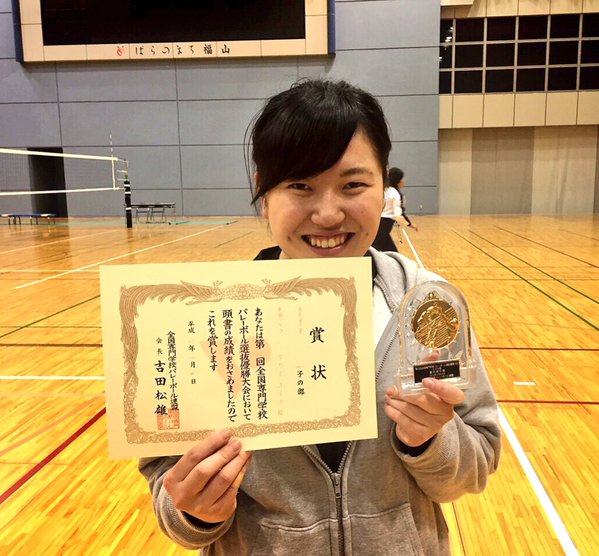 ばらのまち福山
賞状
子の部
あなたは第 回全国専門学校
バレーボール選抜優勝大会において
頭書の成績をおさめましたので
これを賞します
平成 年 月 日
全国専門学校バレーボール連盟
会長 吉田松雄